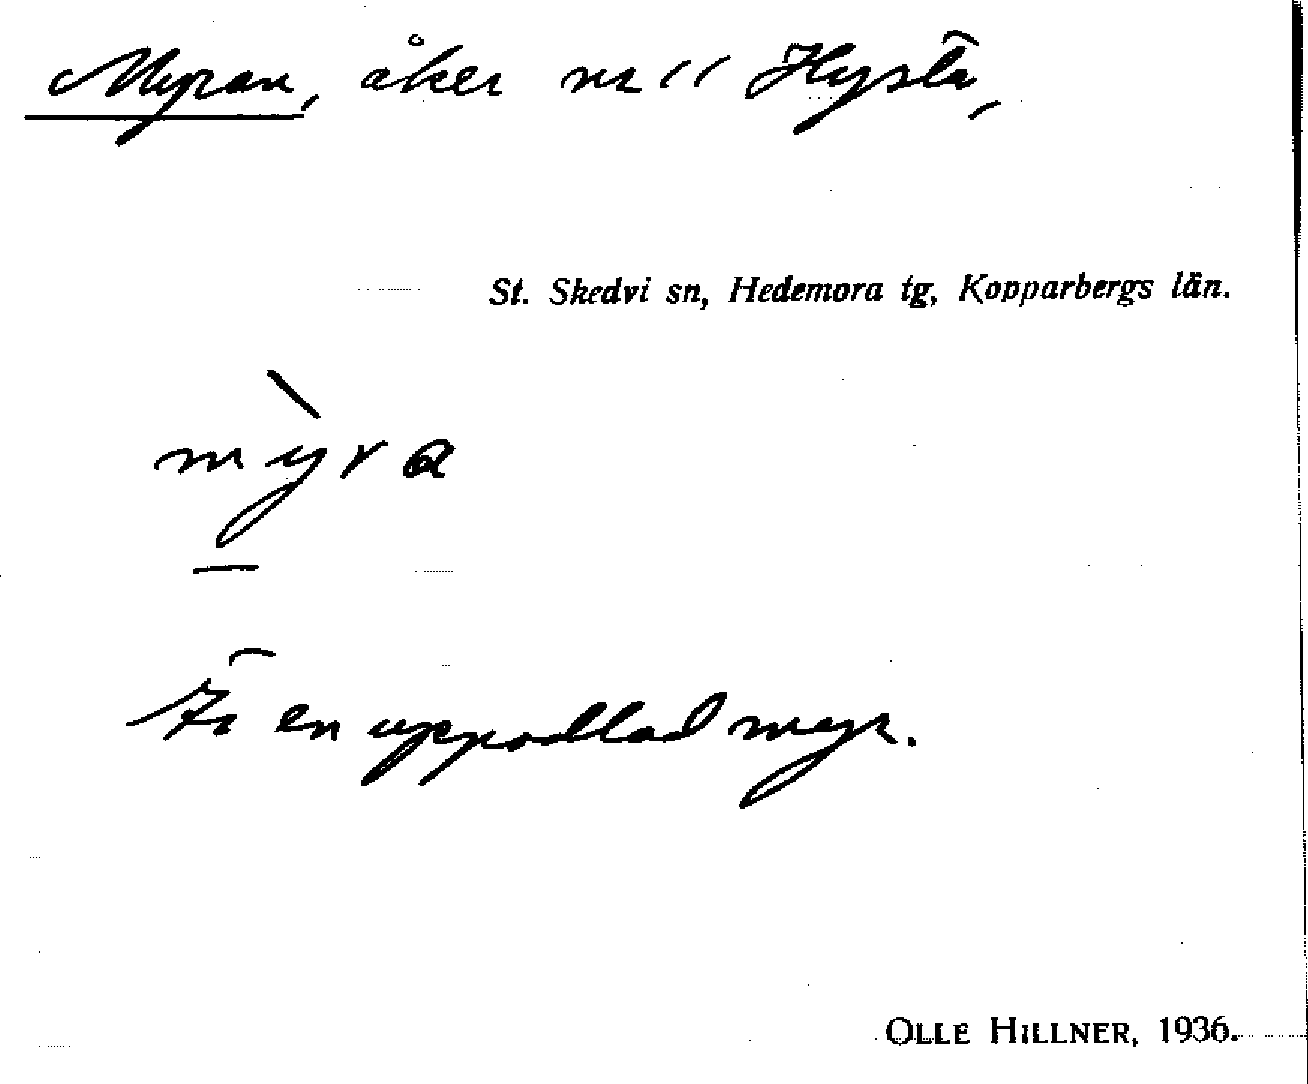 Myran, åker nr 11 Hysta,
St. Skedvi sn, Hedemora tg, Kopparbergs län.
mỳra
Är en uppodlad myr.
OLLE HILLNER, 1936.